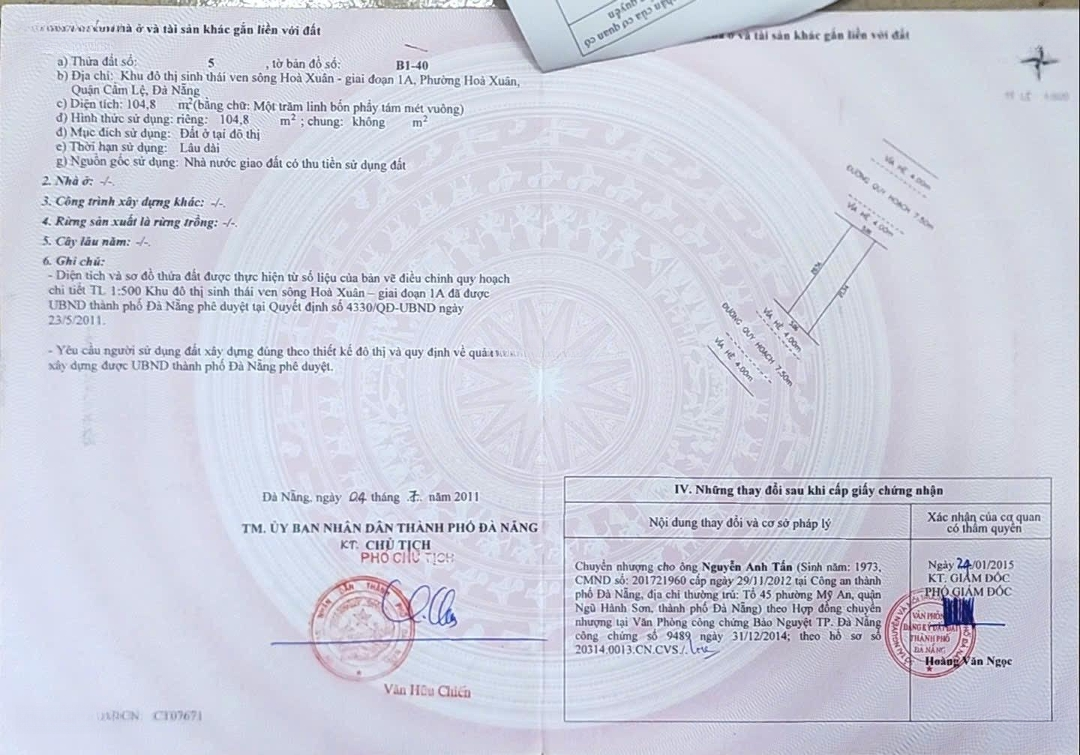 nhà ở và tài sản khác gắn liền với đất
a) Thửa đất số: 5 , tờ bản đồ số: B1-40
b) Địa chỉ: Khu đô thị sinh thái ven sông Hoà Xuân - giai đoạn 1A, Phường Hoà Xuân,
Quận Cẩm Lệ, Đà Nẵng
c) Diện tích: 104,8 m² (bằng chữ: Một trăm linh bốn phẩy tám mét vuông)
d) Hình thức sử dụng: riêng: 104,8 m² ; chung: không m²
đ) Mục đích sử dụng: Đất ở tại đô thị
e) Thời hạn sử dụng: Lâu dài
g) Nguồn gốc sử dụng: Nhà nước giao đất có thu tiền sử dụng đất
2. Nhà ở: -/-.
3. Công trình xây dựng khác: -/-.
4. Rừng sản xuất là rừng trồng: -/-.
5. Cây lâu năm: -/-.
6. Ghi chú:
- Diện tích và sơ đồ thửa đất được thực hiện từ số liệu của bản vẽ điều chỉnh quy hoạch
chi tiết TL 1:500 Khu đô thị sinh thái ven sông Hoà Xuân – giai đoạn 1A đã được
UBND thành phố Đà Nẵng phê duyệt tại Quyết định số 4330/QĐ-UBND ngày
23/5/2011.
- Yêu cầu người sử dụng đất xây dựng đúng theo thiết kế đô thị và quy định về
xây dựng được UBND thành phố Đà Nẵng phê duyệt.
Đà Nẵng, ngày 04 tháng 7 năm 2011
TM. ỦY BAN NHÂN DÂN THÀNH PHỐ ĐÀ NẴNG
KT. CHỦ TỊCH
PHÓ CHỦ TỊCH
Văn Hữu Chiến
CT07671
của cơ quan
quyền
ở và tài sản khác gắn liền với đất
VỈA HÈ 4.00m
ĐƯỜNG QUY HOẠCH 7.50m
VỈA HÈ 4.00m
VỈA HÈ 4.00m
ĐƯỜNG QUY HOẠCH 7.50m
VỈA HÈ 4.00m
IV. Những thay đổi sau khi cấp giấy chứng nhận
Nội dung thay đổi và cơ sở pháp lý
Xác nhận của cơ quan
có thẩm quyền
Chuyển nhượng cho ông Nguyễn Anh Tấn (Sinh năm: 1973,
CMND số: 201721960 cấp ngày 29/11/2012 tại Công an thành
phố Đà Nẵng, địa chỉ thường trú: Tổ 45 phường Mỹ An, quận
Ngũ Hành Sơn, thành phố Đà Nẵng) theo Hợp đồng chuyển
nhượng tại Văn Phòng công chứng Bảo Nguyệt TP. Đà Nẵng
công chứng số 9489 ngày 31/12/2014; theo hồ sơ số
20314.0013.CN.CVS./.
Ngày 24/01/2015
KT. GIÁM ĐỐC
PHÓ GIÁM ĐỐC
VĂN PHÒNG
ĐĂNG KÝ ĐẤT ĐAI
THÀNH PHỐ
ĐÀ NẴNG
Hoàng Văn Ngọc